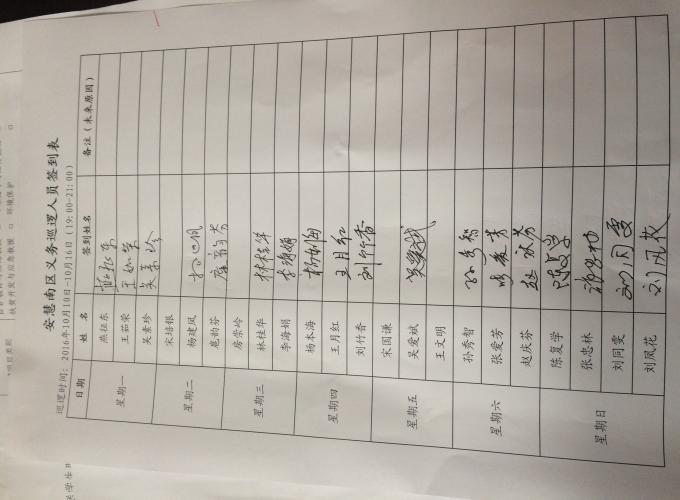 安慧南区义务巡逻人员签到表
巡逻时间：2016年10月10日-10月16日（19:00-21:00）
日期 姓名 签到姓名 备注（未来原因）
星期一 燕征东
王茹荣 王茹荣
吴素珍 吴素珍
星期二 宋培银
杨建风
庞韵芬
星期三 房荣岭
林桂华 林桂华
李海娟 李海娟
星期四 杨本海
王月红 王月红
刘竹香 刘竹香
星期五 宋国谦
吴爱斌 吴爱斌
王文明
星期六 孙秀智 孙秀智
张爱芳
赵庆芬 赵庆芬
星期日 陈复学 陈复学
张忠林
刘同雯 刘同雯
刘凤花 刘凤花
恢复开发与应急救援 □ 环境保护
*项目类别